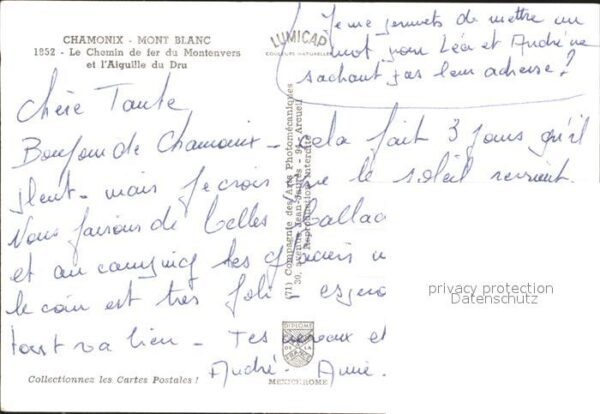 CHAMONIX - MONT BLANC
1852 - Le Chemin de fer du Montenvers
et l'Aiguille du Dru
LUMICAP
COULEURS NATURELLES
Je me permets de mettre un
mot pour Léa et André ne
sachant pas leur adresse ?
Chère Tante
Bonjour de Chamonix - Cela fait 3 jours qu'il
pleut - mais je crois que le soleil revient.
Nous faisons de belles ballad
et au camping les
le coin est très joli - 
tout va bien - Tes neveux et
André - Annie.
(71) Compagnie des Arts Photomécaniques
30, avenue Jean-Jaurès - 94 Arcueil
Reproduction interdite
privacy protection
Datenschutz
DIPLOME
DE LA
Collectionnez les Cartes Postales !
MEXICHROME